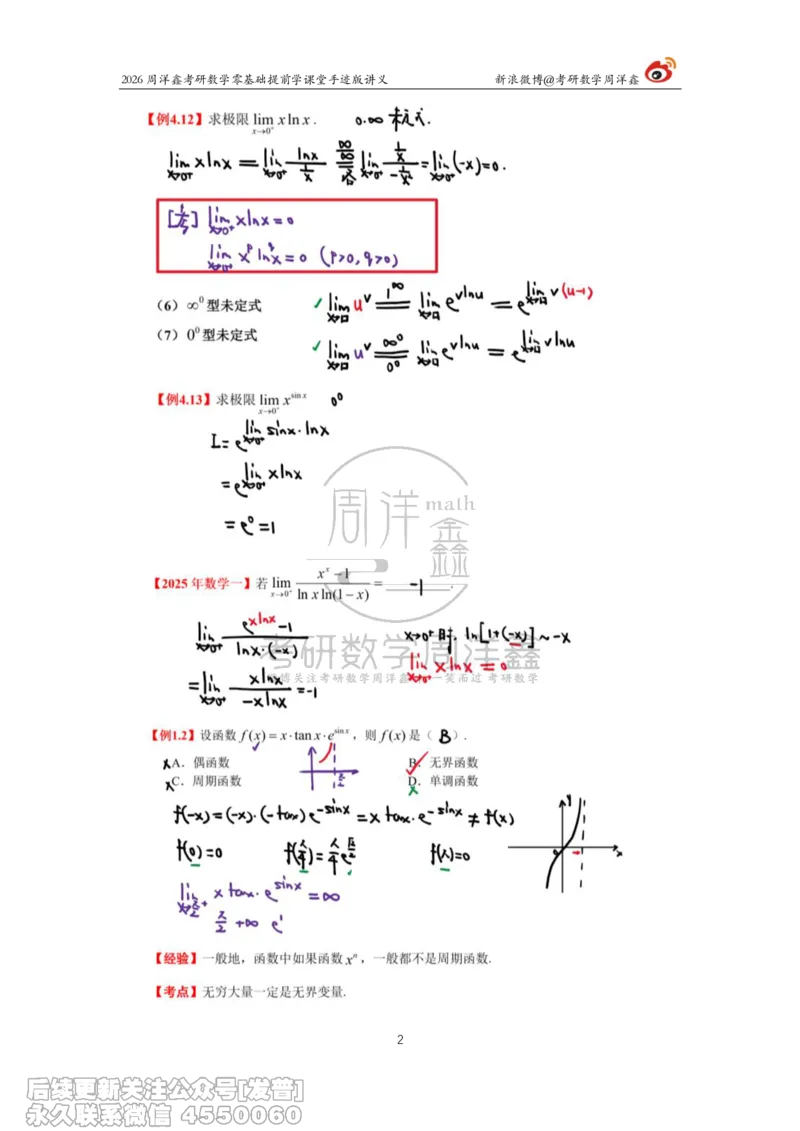 2026 周洋鑫考研数学零基础提前学课堂手迹版讲义 新浪微博@考研数学周洋鑫
【例4.12】求极限 lim x→0⁺ x ln x . 0·∞ 未定式.
lim x→0⁺ xlnx = lim x→0⁺ lnx / (1/x) = (∞/∞ 洛) lim x→0⁺ (1/x) / (-1/x²) = lim x→0⁺ (-x) = 0 .
lim x→0⁺ xlnx = 0
lim x→0⁺ x^p ln^q x = 0 (p>0, q>0)
（6）∞⁰ 型未定式 ✓ lim x→□ u^v = (1^∞) lim x→□ e^{vlnu} = e^{lim x→□ v(u-1)}
（7）0⁰ 型未定式 ✓ lim x→□ u^v = (∞⁰ 0⁰) lim x→□ e^{vlnu} = e^{lim x→□ vlnu}
【例4.13】求极限 lim x→0⁺ x^{sin x} 0⁰
L = e^{lim x→0⁺ sinx·lnx}
= e^{lim x→0⁺ xlnx}
= e⁰ = 1
周洋鑫 math
【2025 年数学一】若 lim x→0⁺ (x^x − 1) / (ln x ln(1 − x)) = -1 .
lim x→0⁺ (e^{xlnx} - 1) / (lnx·(-x)) x→0⁺时. ln[1+(-x)] ~ -x
考研数学周洋鑫
lim x→0⁺ xlnx = 0
博关注考研数学周洋鑫 一笑而过 考研数学
= lim x→0⁺ xlnx / (-xlnx) = -1
【例1.2】设函数 f(x) = x · tan x · e^{sin x}，则 f(x) 是（ B ）.
x A．偶函数 ✓ B．无界函数
x C．周期函数 x D．单调函数
π/2
f(-x) = (-x)·(-tanx) e^{-sinx} = x tanx·e^{-sinx} ≠ f(x)
f(0) = 0 f(π/4) = π/4 e^{√2/2} f(π) = 0
y 0 x
lim x→π/2⁺ x tanx·e^{sinx} = ∞
π/2 +∞ e¹
【经验】一般地，函数中如果函数 xⁿ，一般都不是周期函数.
【考点】无穷大量一定是无界变量.
2
后续更新关注公众号[发普]
永久联系微信 4550060